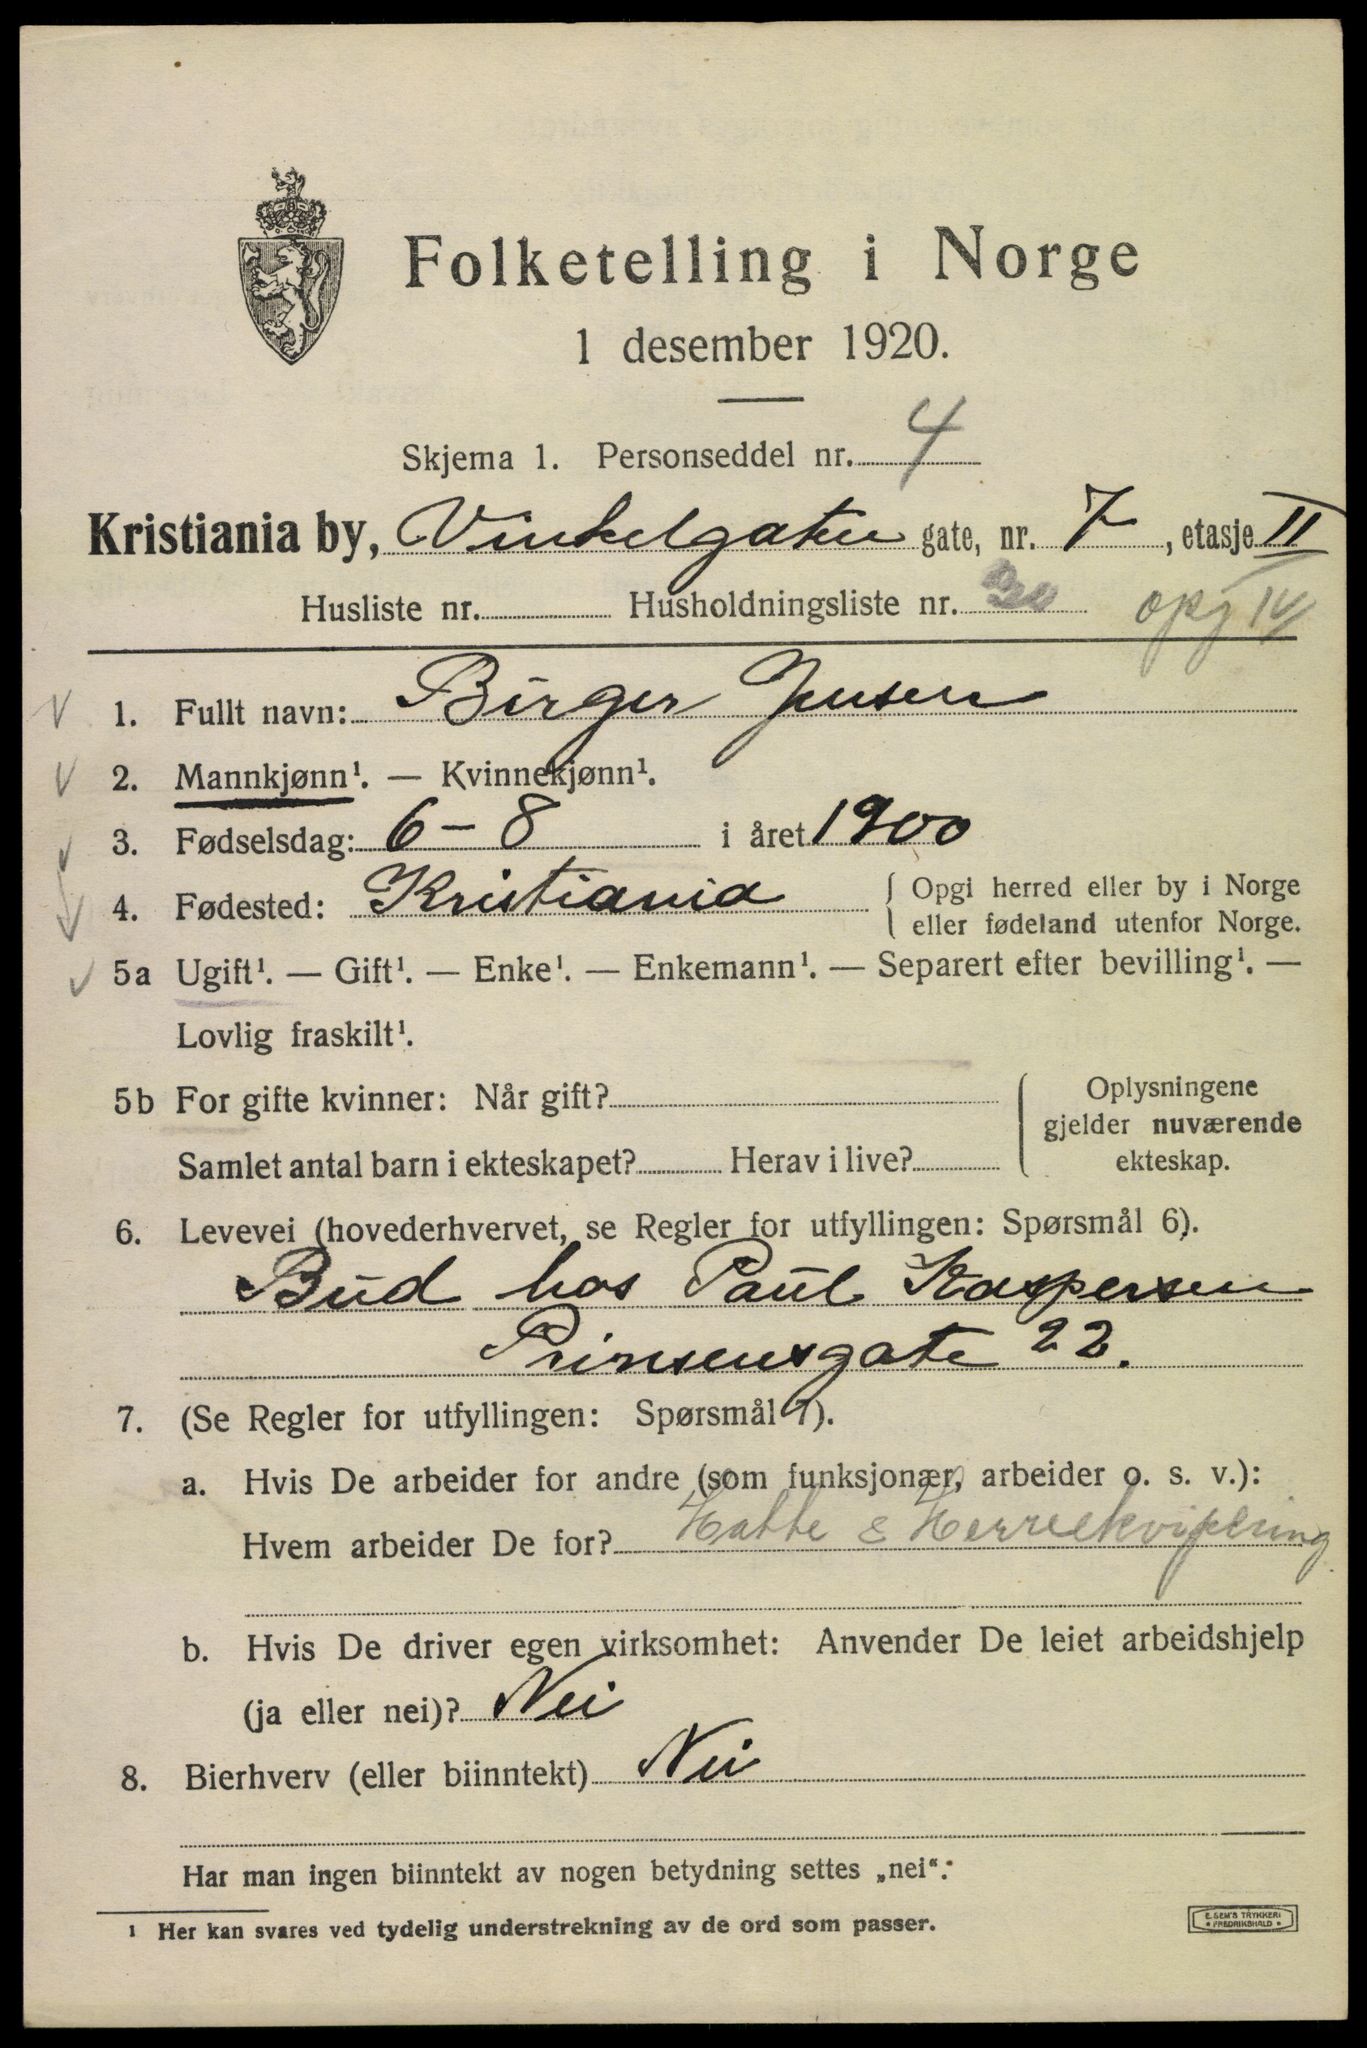 Folketelling i Norge
1 desember 1920.
Skjema 1. Personseddel nr. 4
Kristiania by, Vinkelgaten gate, nr. 7, etasje II
Husliste nr. Husholdningsliste nr. opg IV
1. Fullt navn: Birger Jensen
2. Mannkjønn¹. — Kvinnekjønn¹.
3. Fødselsdag: 6-8 i året 1900
4. Fødested: Kristiania { Opgi herred eller by i Norge
eller fødeland utenfor Norge.
5a Ugift¹. — Gift¹. — Enke¹. — Enkemann¹. — Separert efter bevilling¹. —
Lovlig fraskilt¹.
5b For gifte kvinner: Når gift? { Oplysningene
gjelder nuværende
Samlet antal barn i ekteskapet? Herav i live? ekteskap.
6. Levevei (hovederhvervet, se Regler for utfyllingen: Spørsmål 6).
Bud hos Paul Kaspersen
Prinsensgate 22.
7. (Se Regler for utfyllingen: Spørsmål 7).
a. Hvis De arbeider for andre (som funksjonær, arbeider o. s. v.):
Hvem arbeider De for? Hatte & Herreekvipering
b. Hvis De driver egen virksomhet: Anvender De leiet arbeidshjelp
(ja eller nei)? Nei
8. Bierhverv (eller biinntekt) Nei
Har man ingen biinntekt av nogen betydning settes „nei“.
¹ Her kan svares ved tydelig understrekning av de ord som passer.
E. SEM'S TRYKKERI
• FREDRIKSHALD •